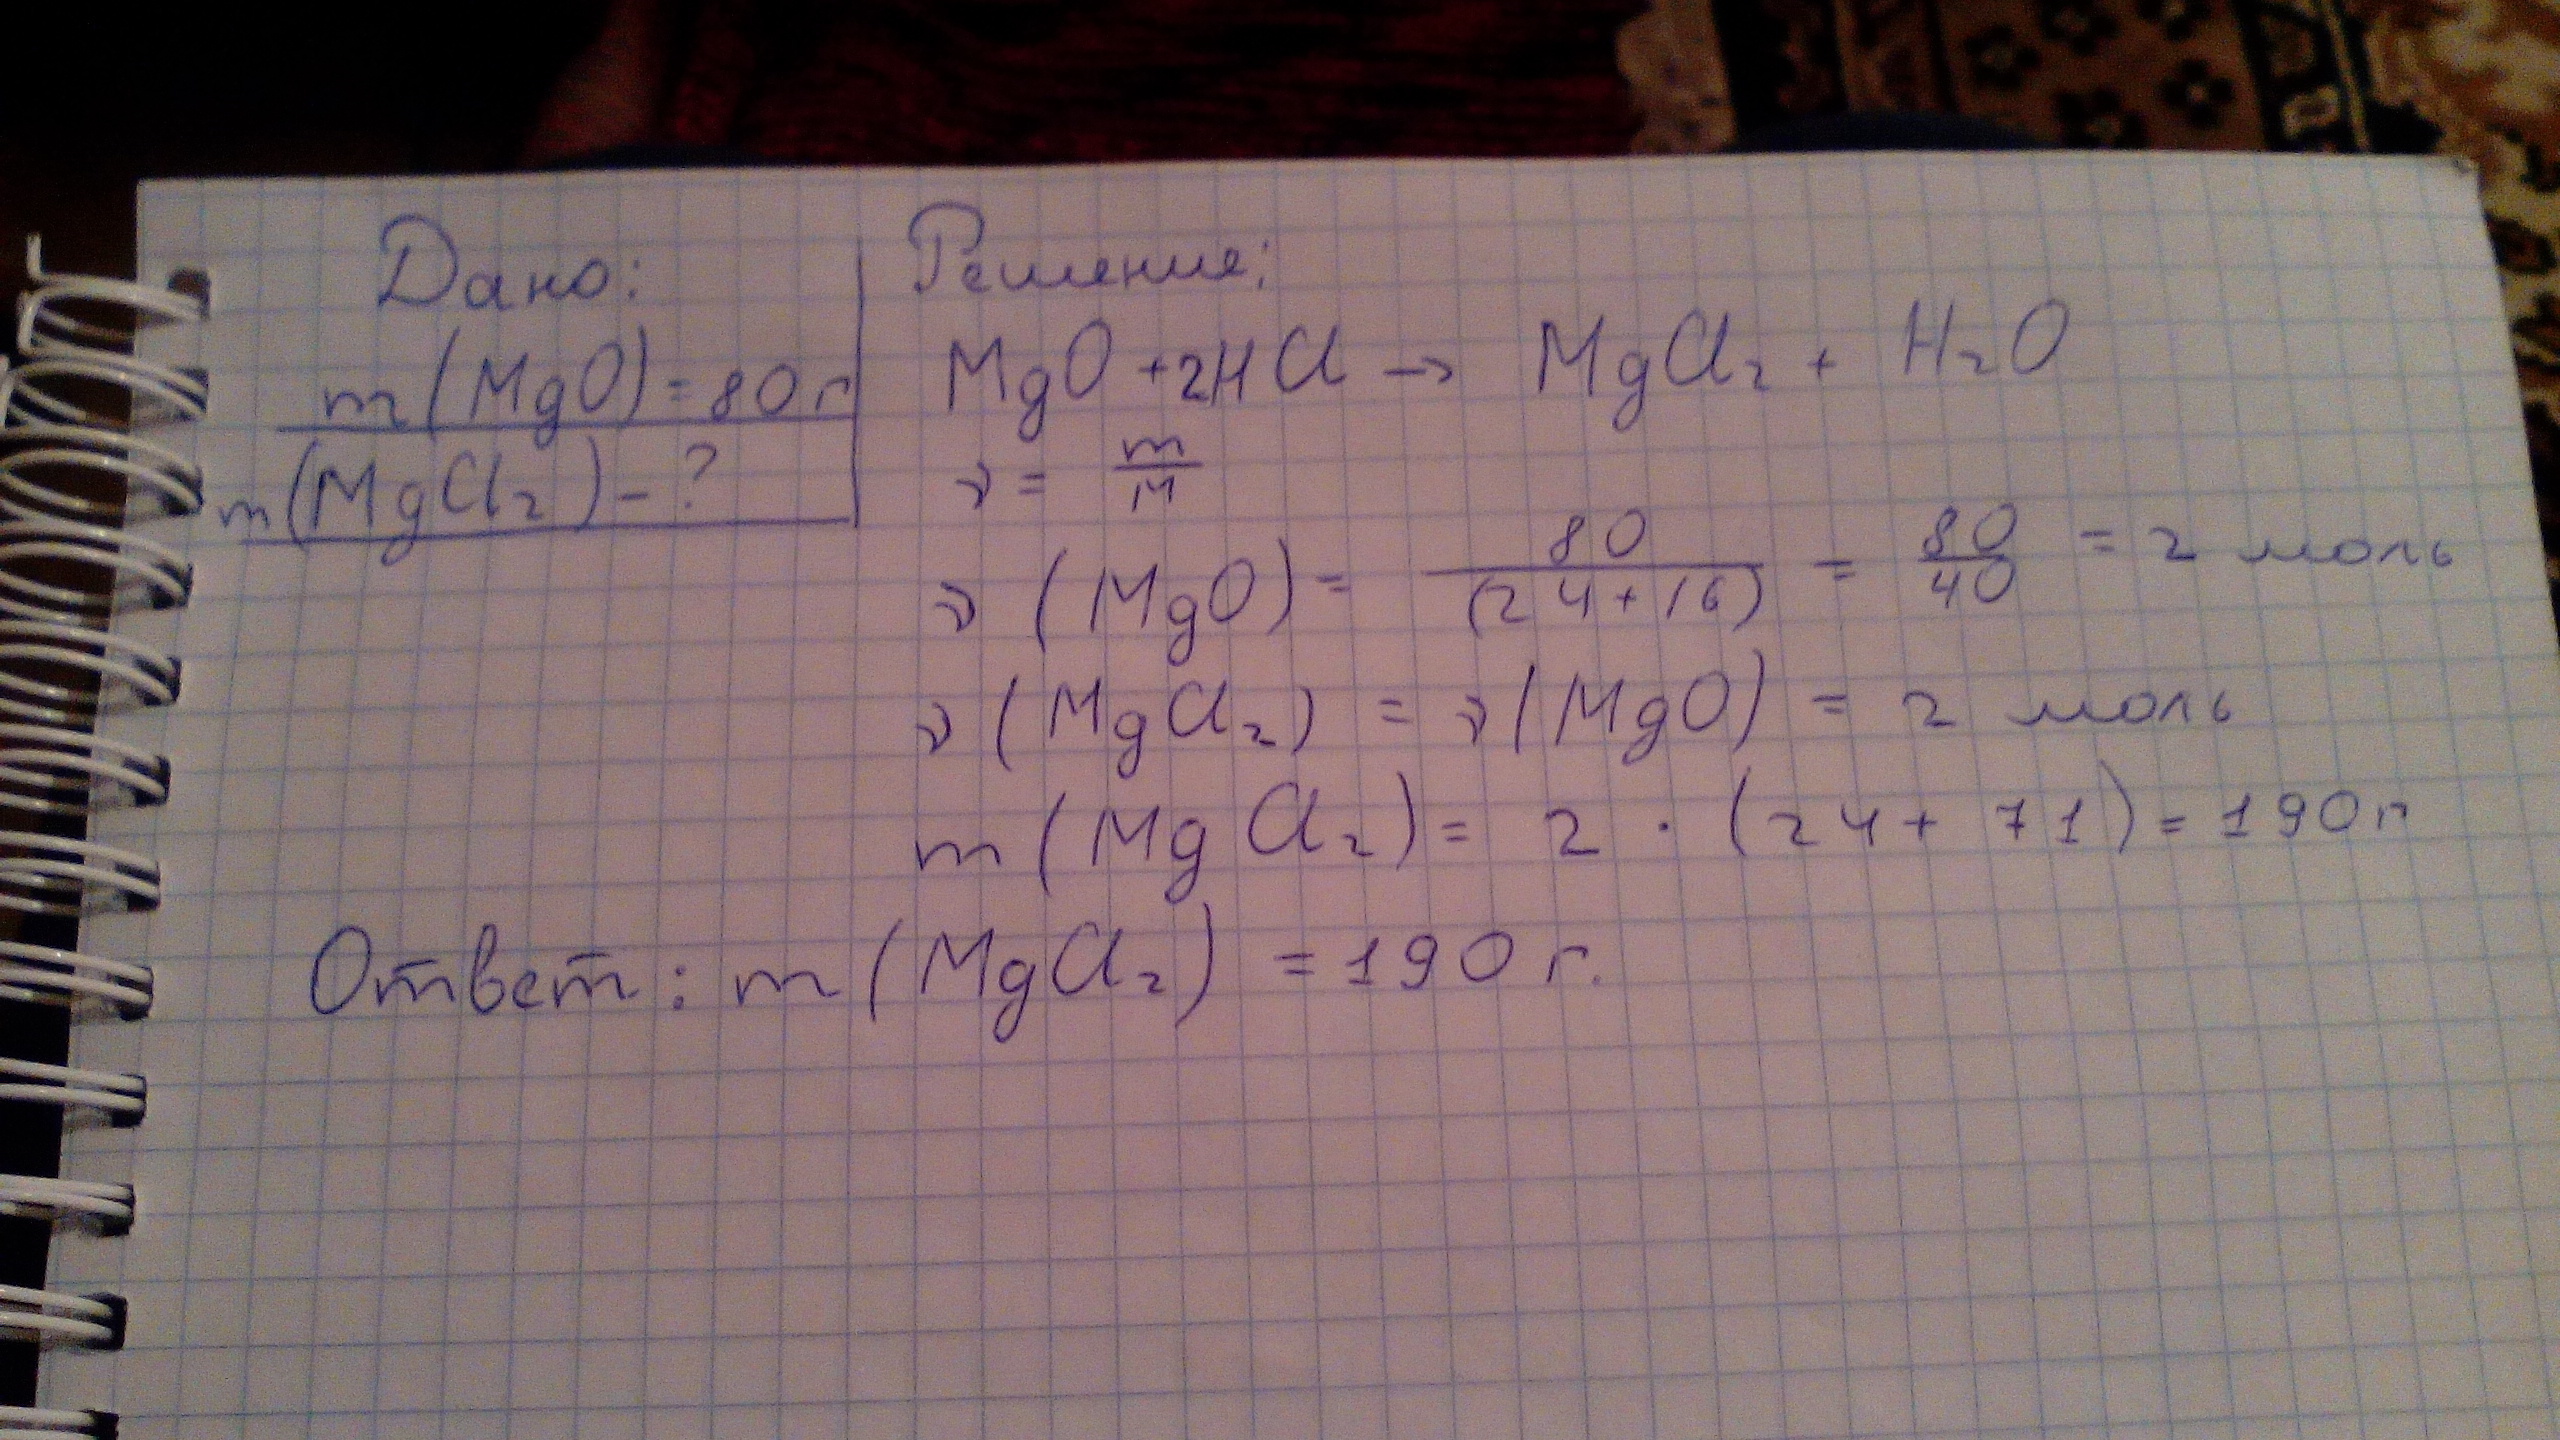 Дано:
m(MgO)=80г
m(MgCl₂)-?
Решение:
MgO+2HCl → MgCl₂ + H₂O
ν = m/M
ν (MgO) = 80/(24+16) = 80/40 = 2 моль
ν (MgCl₂) = ν(MgO) = 2 моль
m (MgCl₂) = 2 · (24+ 71) = 190г
Ответ: m (MgCl₂) = 190 г.